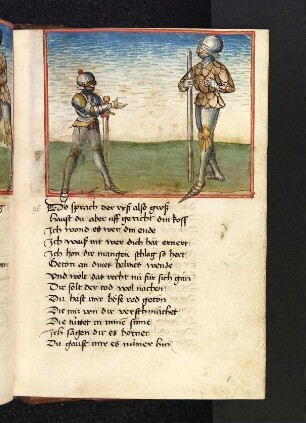 Do sprach der ryß also groß
Haust du aber uff gericht din
Ich wond es wer din ende
Ich waiß nit wer dich hat ernert
Ich hon die mangen schlag so hert
Geton an diner helmet wende
Und wolt das recht nu für sich gan
Du solt der tod wol nachen
Du hast mir böse red geton
Die mir von dir verschmachet
in mine sinne
Ich sagen dir es
Du es nimer hin